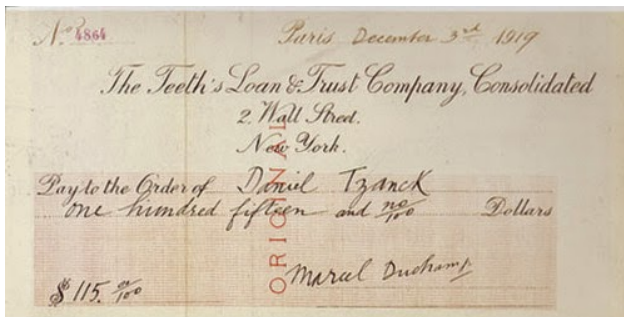 No. 4864 Paris December 3rd 1919
The Teeth's Loan & Trust Company, Consolidated
2. Wall Street.
New York.
Pay to the Order of Daniel Tzanck
one hundred fifteen and no/100 Dollars
ORIGINAL
$ 115. no/100 Marcel Duchamp